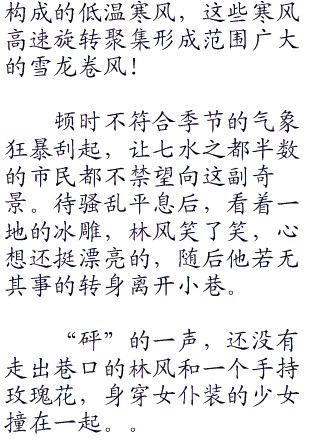 构成的低温寒风，这些寒风
高速旋转聚集形成范围广大
的雪龙卷风！
顿时不符合季节的气象
狂暴刮起，让七水之都半数
的市民都不禁望向这副奇
景。待骚乱平息后，看着一
地的冰雕，林风笑了笑，心
想还挺漂亮的，随后他若无
其事的转身离开小巷。
“砰”的一声，还没有
走出巷口的林风和一个手持
玫瑰花，身穿女仆装的少女
撞在一起。。